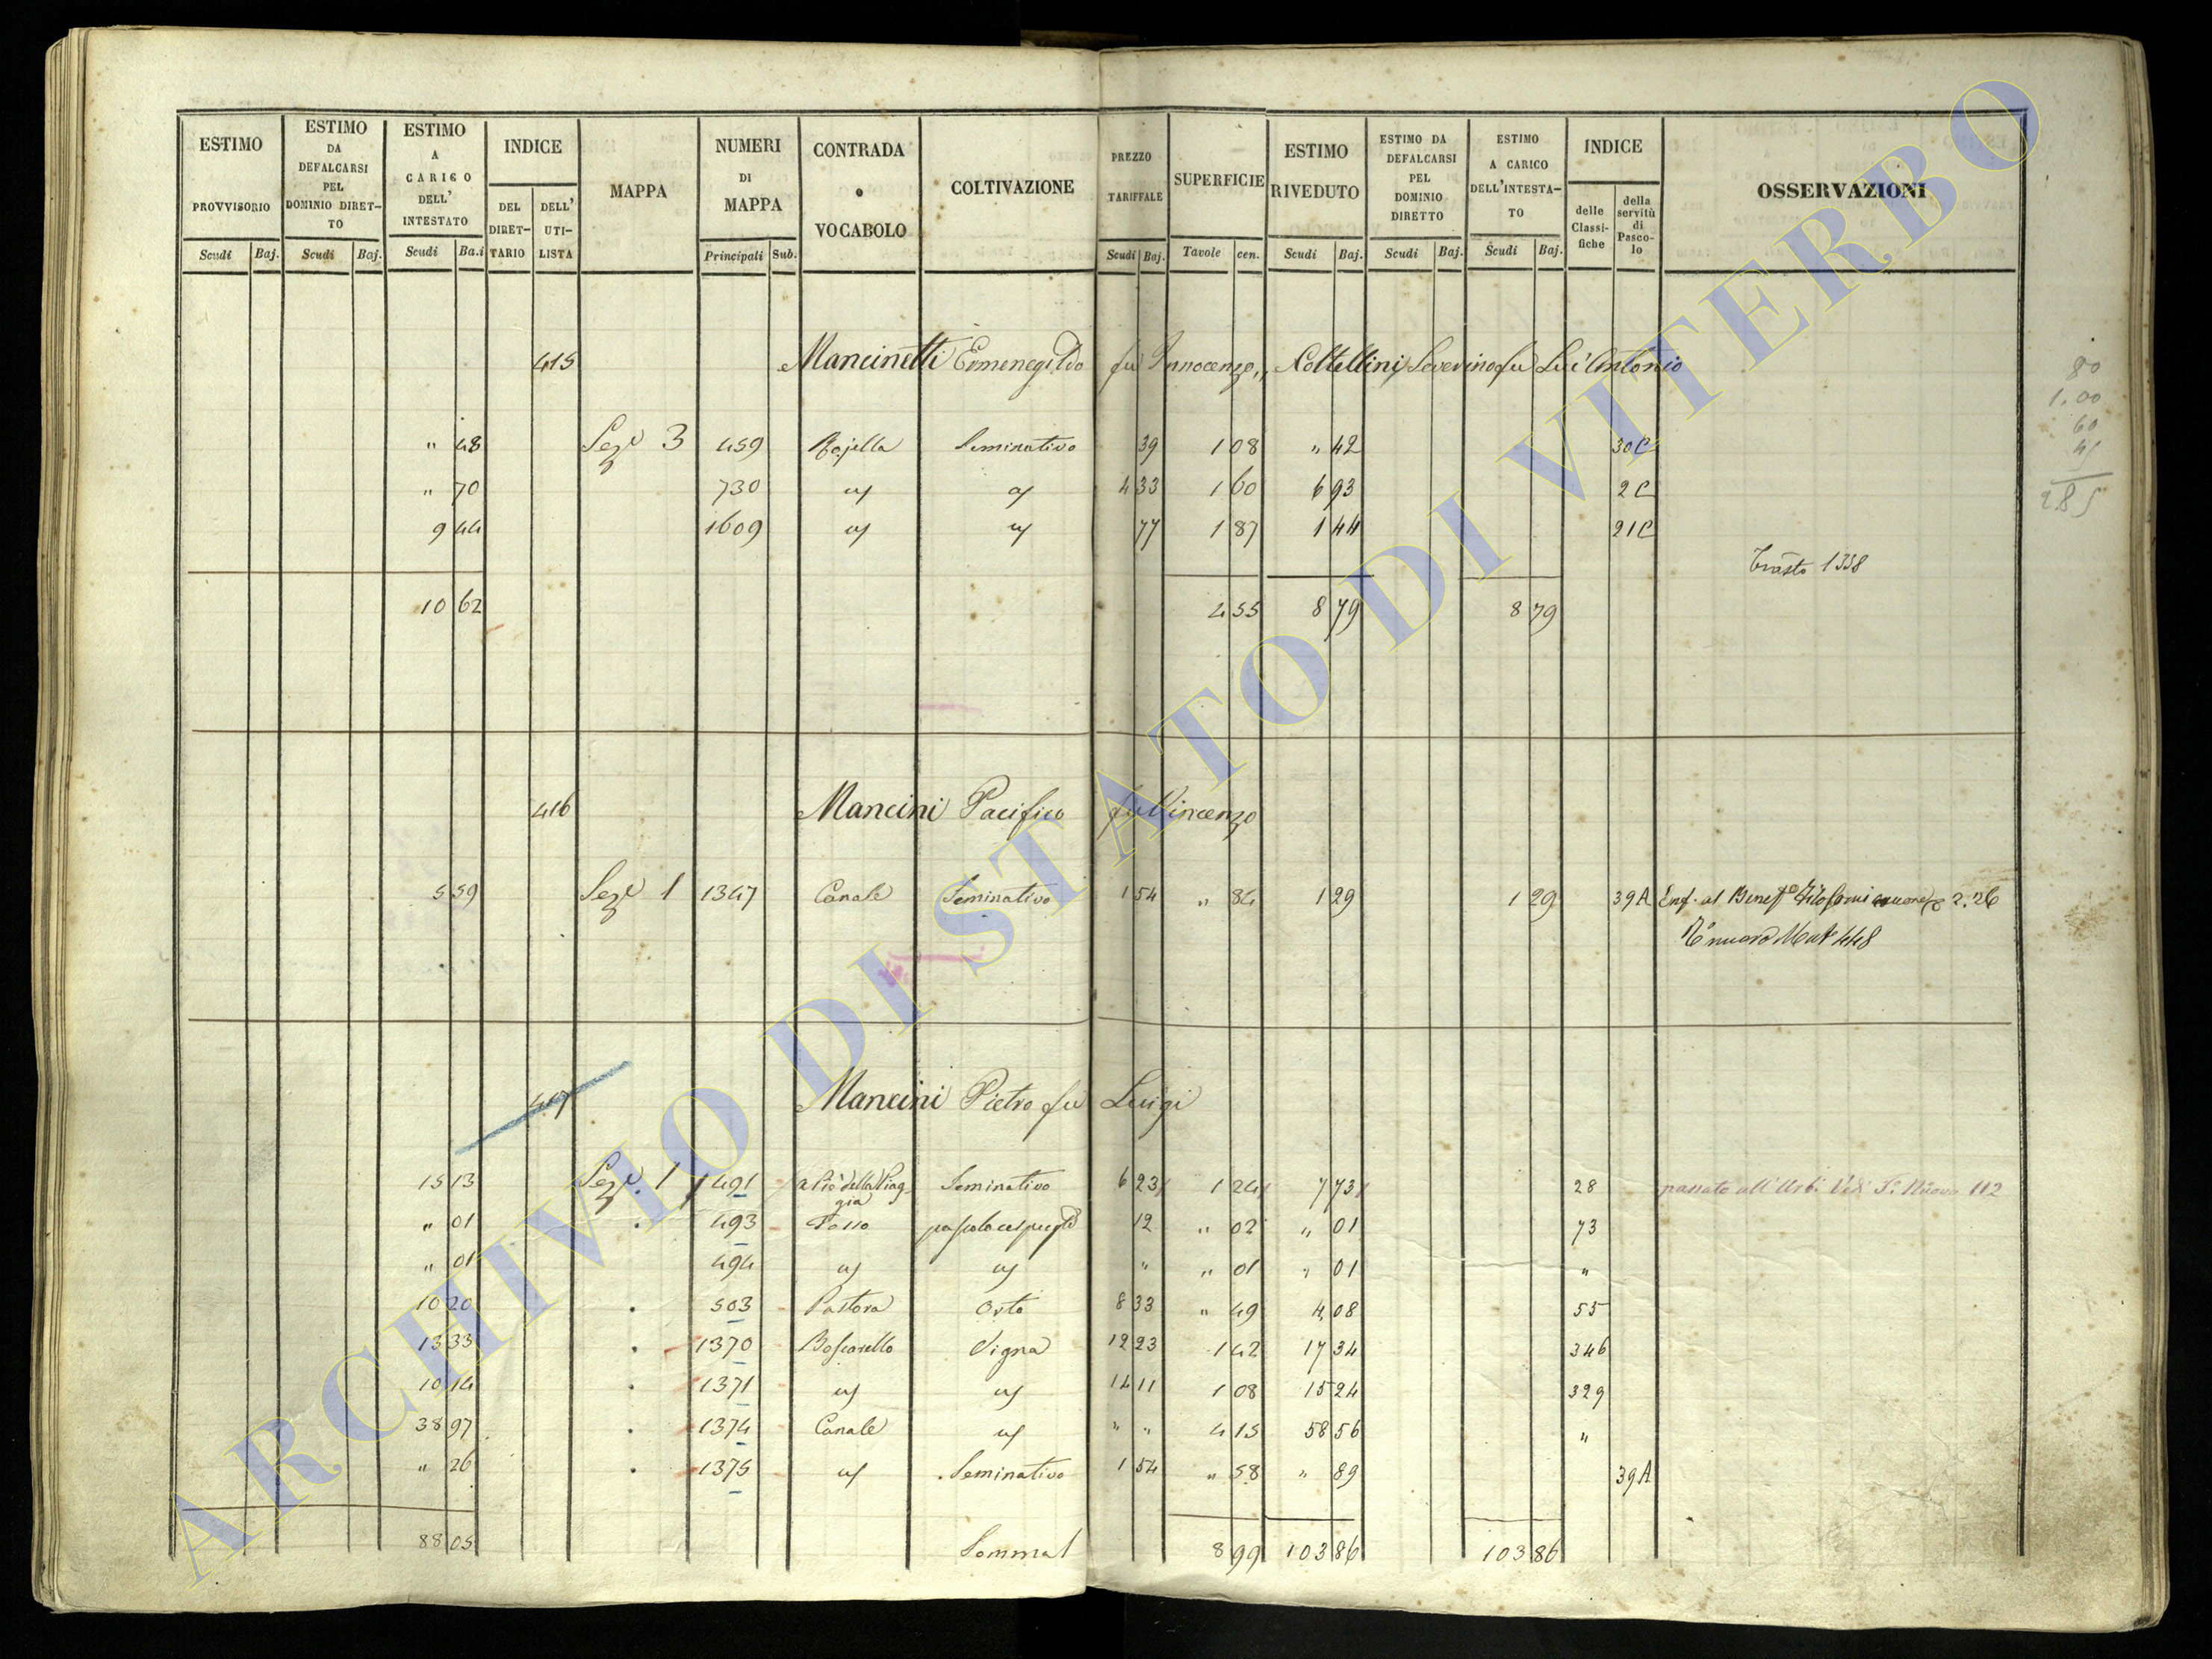 ESTIMO PROVVISORIO | ESTIMO DA DEFALCARSI PEL DOMINIO DIRETTO | ESTIMO A CARICO DELL' INTESTATO | INDICE | MAPPA | NUMERI DI MAPPA | CONTRADA o VOCABOLO | COLTIVAZIONE | PREZZO TARIFFALE | SUPERFICIE | ESTIMO RIVEDUTO | ESTIMO DA DEFALCARSI PEL DOMINIO DIRETTO | ESTIMO A CARICO DELL'INTESTATO | INDICE | OSSERVAZIONI
Scudi Baj. | Scudi Baj. | Scudi Ba.i | DEL DIRETTARIO | DELL' UTILISTA | Principali Sub. | Scudi Baj. | Tavole cen. | Scudi Baj. | Scudi Baj. | Scudi Baj. | delle Classifiche | della servitù di Pascolo
415 Mancinelli Ermenegildo fu Innocenzo,, Coltellini Severino fu Lui Antonio
80
1.00
60
45
285
" 48 Seze 3 459 Rojella Seminativo 39 1 08 " 42 30C
" 70 730 " " 4 33 1 60 6 93 2C
9 44 1609 " " 77 1 87 1 44 21C
Trasto 1338
10 62 4 55 8 79 8 79
416 Mancini Pacifico fu Vincenzo
5 59 Seze 1 1347 Canale Seminativo 1 54 " 84 1 29 1 29 39A Enf. al Benef 2.26
nuovo Mat 448
417 Mancini Pietro fu Luigi
15 13 Seze 1 491 a Piè della Piaggia Seminativo 6 23 1 24 7 73 28 passato all'Urb. Vedi Nuovo 112
" 01 493 Fosso pascolo cespugl 12 " 02 " 01 73
" 01 494 " " " " 01 " 01 "
10 20 503 Pastora Orto 8 33 " 49 4 08 55
13 33 1370 Boscarello Vigna 12 23 1 42 17 34 346
10 14 1371 " " 14 11 1 08 15 24 329
38 97 1374 Canale " " " 4 15 58 56 "
" 26 1375 " Seminativo 1 54 " 58 " 89 39A
88 05 Somma 8 99 103 86 103 86
ARCHIVIO DI STATO DI VITERBO